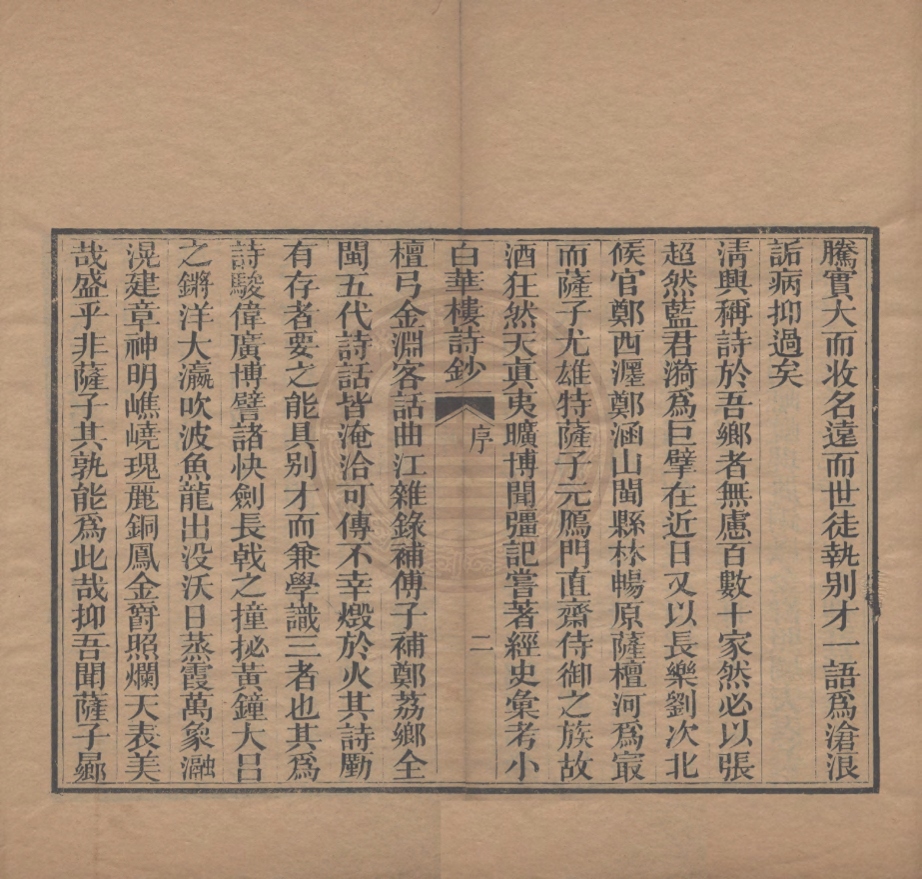 騰實大而收名遠而世徒執别才一語爲滄浪
詬病抑過矣
淸興稱詩於吾鄕者無慮百數十家然必以張
超然藍君漪爲巨擘在近日又以長樂劉次北
候官鄭西瀍鄭涵山閩縣林暢原薩檀河爲㝡
而薩子尤雄特薩子元鴈門直齋侍御之族故
酒狂然天眞夷曠博聞彊記嘗著經史彙考小
白華樓詩鈔
序
二
檀弓金淵客話曲江雜錄補傅子補鄭荔鄕全
閩五代詩話皆淹洽可傳不幸燬於火其詩勵
有存者要之能具别才而兼學識三者也其爲
詩駿偉廣博譬諸快劍長戟之撞拯黃鐘大呂
之鏘洋大瀛吹波魚龍出没沃日蒸霞萬象瀜
滉建章神明嶕嶢瑰麗銅鳳金爵照爛天表美
哉盛乎非薩子其孰能爲此哉抑吾聞薩子曏